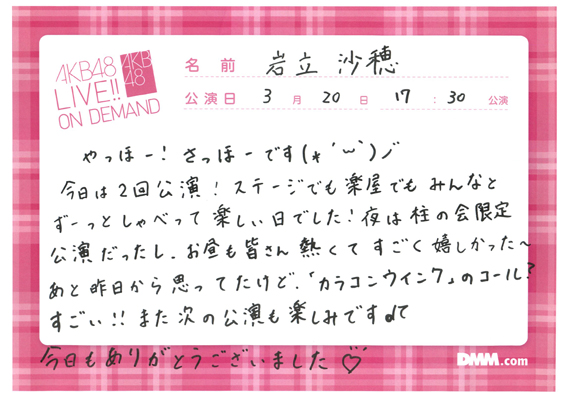 AKB48
LIVE!!
ON DEMAND
AKB
48
名前 岩立 沙穂
公演日 3月20日 17:30公演
やっほー！さっほーです(*´ω`)ノ
今日は2回公演！ステージでも楽屋でもみんなと
ずーっとしゃべって楽しい日でした！夜は柱の会限定
公演だったし、お昼も皆さん熱くてすごく嬉しかった〜
あと昨日から思ってたけど、「カラコンウインク」のコール？
すごい!!また次の公演も楽しみです
今日もありがとうございました♡
DMM.com